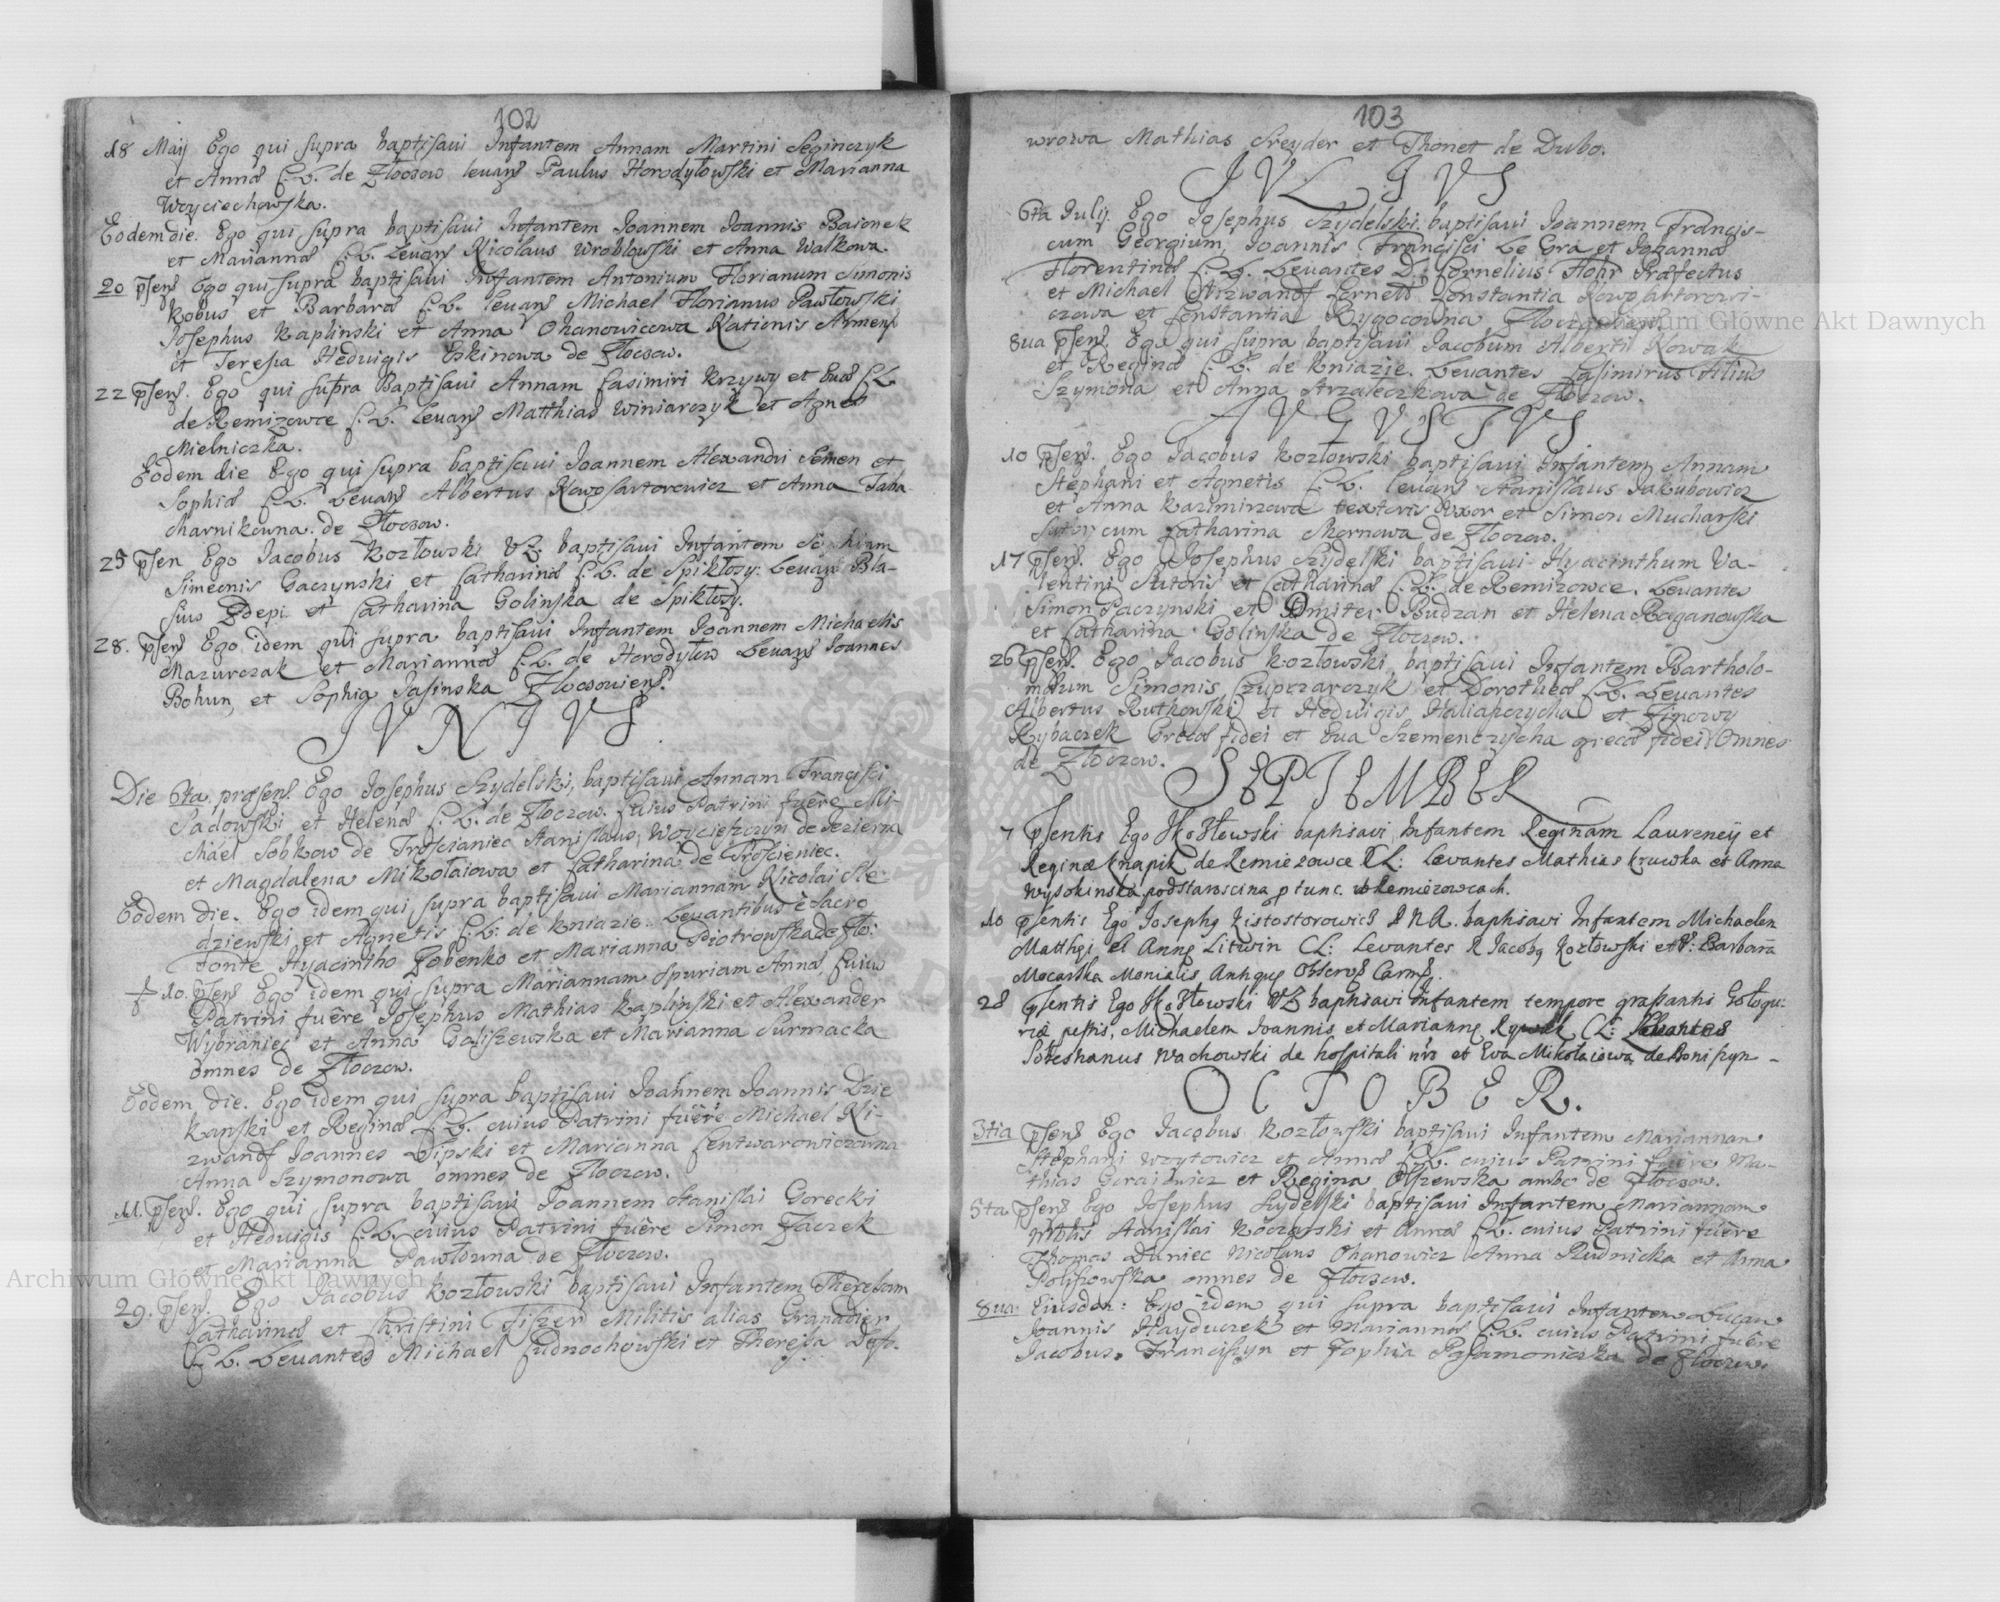 102
18 Maij Ego qui supra baptisaui Infantem Annam Martini Seginczyk
et Annæ C.L. de Złoczow leuans Paulus Horodyłowski et Marianna
Woyciechowska.
Eodem die. Ego qui supra baptisaui Infantem Ioannem Ioannis Basonek
et Mariannæ C.L. Leuans Nicolaus Wroblowski et Anna Walkowa.
20 pſens Ego qui supra baptisaui Infantem Antonium Florianum Simonis
Kobus et Barbaræ C.L. leuans Michael Florianus Pawłowski
Iosephus Kaplinski et Anna Ohanowicowa Nationis Armens
et Teresia Heduigis Eskinowa de Złoczow.
22 pſens. Ego qui supra Baptisaui Annam Casimiri Krzywy et Euæ C L
de Remizowce C.L. Leuans Matthias Winiarczyk et Agnes
Mielniczka.
Eodem die Ego qui supra baptisaui Ioannem Alexandri Semen et
Sophiæ C.L. Leuans Albertus Nowosartorowicz et Anna Taba
charnikowna de Złoczow.
25 pſen Ego Iacobus Kozłowski VZ. baptisaui Infantem Sophiam
Simeonis Gaczynski et Catharinæ C.L. de Spikłosy: Leuans Bla-
sius et Catharina Golinska de Spikłosy.
28. pſens Ego idem qui supra baptisaui Infantem Ioannem Michaelis
Mazurczak et Mariannæ C.L. de Horodyłow Leuans Ioannes
Bohun, et Sophia Iasinska Złoczouiens.
IVNIVS
Die 6ta præsens. Ego Iosephus Szydelski, baptisaui Annam Francisci
Sadowski et Helenæ C.L. de Złoczow. Cuius Patrini fuêre Mi-
chael Sobkow de Troscianiec Stanislaus, Woyciehczyn de Iezierna
et Magdalena Mikołaiowa et Catharina de Trościeniec.
Eodem die. Ego idem qui supra baptisaui Mariannam Nicolai Sle
dziewski et Agnetis C.L. de Kniazie. Leuantibus è Sacro
Fonte Hyacintho Zobenko et Marianna Piotrowska de Zło:
10. pſens Ego idem qui supra Mariannam Spuriam Annæ, Cuius
Patrini fuêre Iosephus Mathias Kaplinski et Alexander
Wybraniec et Anna Galiszewska et Marianna Surmacka
omnes de Złoczow.
Eodem die. Ego idem qui supra baptisaui Ioannem Ioannis Dzie
kanski et Reginæ C.L. cuius Patrini fuêre Michael Ni-
zwandt Ioannes Lipski et Marianna Centwarowiczowna
Anna Szymonowa omnes de Złoczow.
11. pſens. Ego qui supra baptisaui Ioannem Stanislai Gorecki
et Heduigis C.L. cuius Patrini fuêre Simon Zaczek
et Marianna Pawłowna de Złoczow.
29. pſens. Ego Iacobus Kozłowski baptisaui Infantem Theresiam
Catharinæ et Christini Fiszer Militis alias Granadier
C L. Leuantes Michael Cudnochowski et Theresa
103
wrowa Mathias Sreyder et Thonet de Dubo.
IVLIVS
6ta Iulij. Ego Iosephus Szydelski baptisaui Ioannem Francis-
cum Georgium, Ioannis Francisci Le Gra et Iohannæ
Florentinæ C.L. Leuantes D: Cornelius Flohr Præfectus
et Michael Nizwandt Cornett Constantia Nowosartorowi-
czowa et Constantia Rygocowna Złoczowienses.
8ua pſens. Ego qui supra baptisaui Iacobum Alberti Nowak
et Reginæ C.L. de Kniazie. Leuantes Casimirus filius
Szymona et Anna Strzałeczkowa de Złoczow.
AVGVSTVS
10 pſens. Ego Iacobus Kozłowski baptisaui Infantem Annam
Stephani et Agnetis C.L. leuans Stanislaus Iakubowicz
et Anna Kazimirzowa textoris Vxor et Simon Mucharski
Sutor cum Catharina Skornowa de Złoczow.
17 pſens. Ego Iosephus Szydelski baptisaui Hyacinthum Va-
lentini Sutoris et Catharinæ C.L. de Remizowce. Leuantes
Simon Paczynski et Dmiter Budzan et Helena Raganowska
et Catharina Golinska de Złoczow.
26 pſens. Ego Iacobus Kozłowski baptisaui Infantem Bartholo-
mæum Simonis Czuprzarczyk et Dorotheæ C.L. Leuantes
Albertus Rutkowski et Heduigis Haliapczycha et Zinowy
Rybaczek Græcæ fidei et Eua Szemenczycha græcæ fidei Omnes
de Złoczow.
SEPTEMBER
7 pſentis Ego JKozłowski baptisavi Infantem Reginam Laurencij et
Reginæ Knapik de Remizowce CL: Levantes Mathias Kruwka et Anna
Wysokinska podstaroscina p tunc. w Remizowcach.
10 pſentis Ego Iosephq Kistostorowicz P N A. baptisavi Infantem Michaelem
Matthęi et Annę Litwin CL: Levantes R Jacobq Kozłowski et V: Barbara
Mocarska Monialis Antiquę Observę Carms.
28 pſentis Ego JKozłowski VZ baptisavi Infantem tempore graſsantis Gologu:
riæ pestis, Michaelem Ioannis et Mariannę Rywak CL: Levantes
Sebestianus Wachowski de hospitali nro et Eva Mikołaiowa de Boniszyn -
OCTOBER.
3tia pſens Ego Iacobus Kozłowski baptisaui Infantem Mariannam
Stephani Woytowicz et Annæ C.L. cuius Patrini fuêre Ma-
thias Geraszewicz et Regina Olszewska ambo de Złoczow.
5ta pſens Ego Iosephus Szydelski baptisaui Infantem Mariannam
Nobilis Stanislai Koczarski et Annæ C.L. cuius Patrini fuêre
Thomas Duniec Nicolaus Ohanowicz Anna Rudnicka et Anna
Polihowska omnes de Złoczow.
8ua. Eiusdem: Ego idem qui supra baptisaui Infantem Lucam
Ioannis Hayduczek et Mariannæ C.L. cuius Patrini fuêre
Iacobus Franciszyn et Zophia Pasamoniczka de Złoczow.
Archiwum Główne Akt Dawnych
Archiwum Główne Akt Dawnych